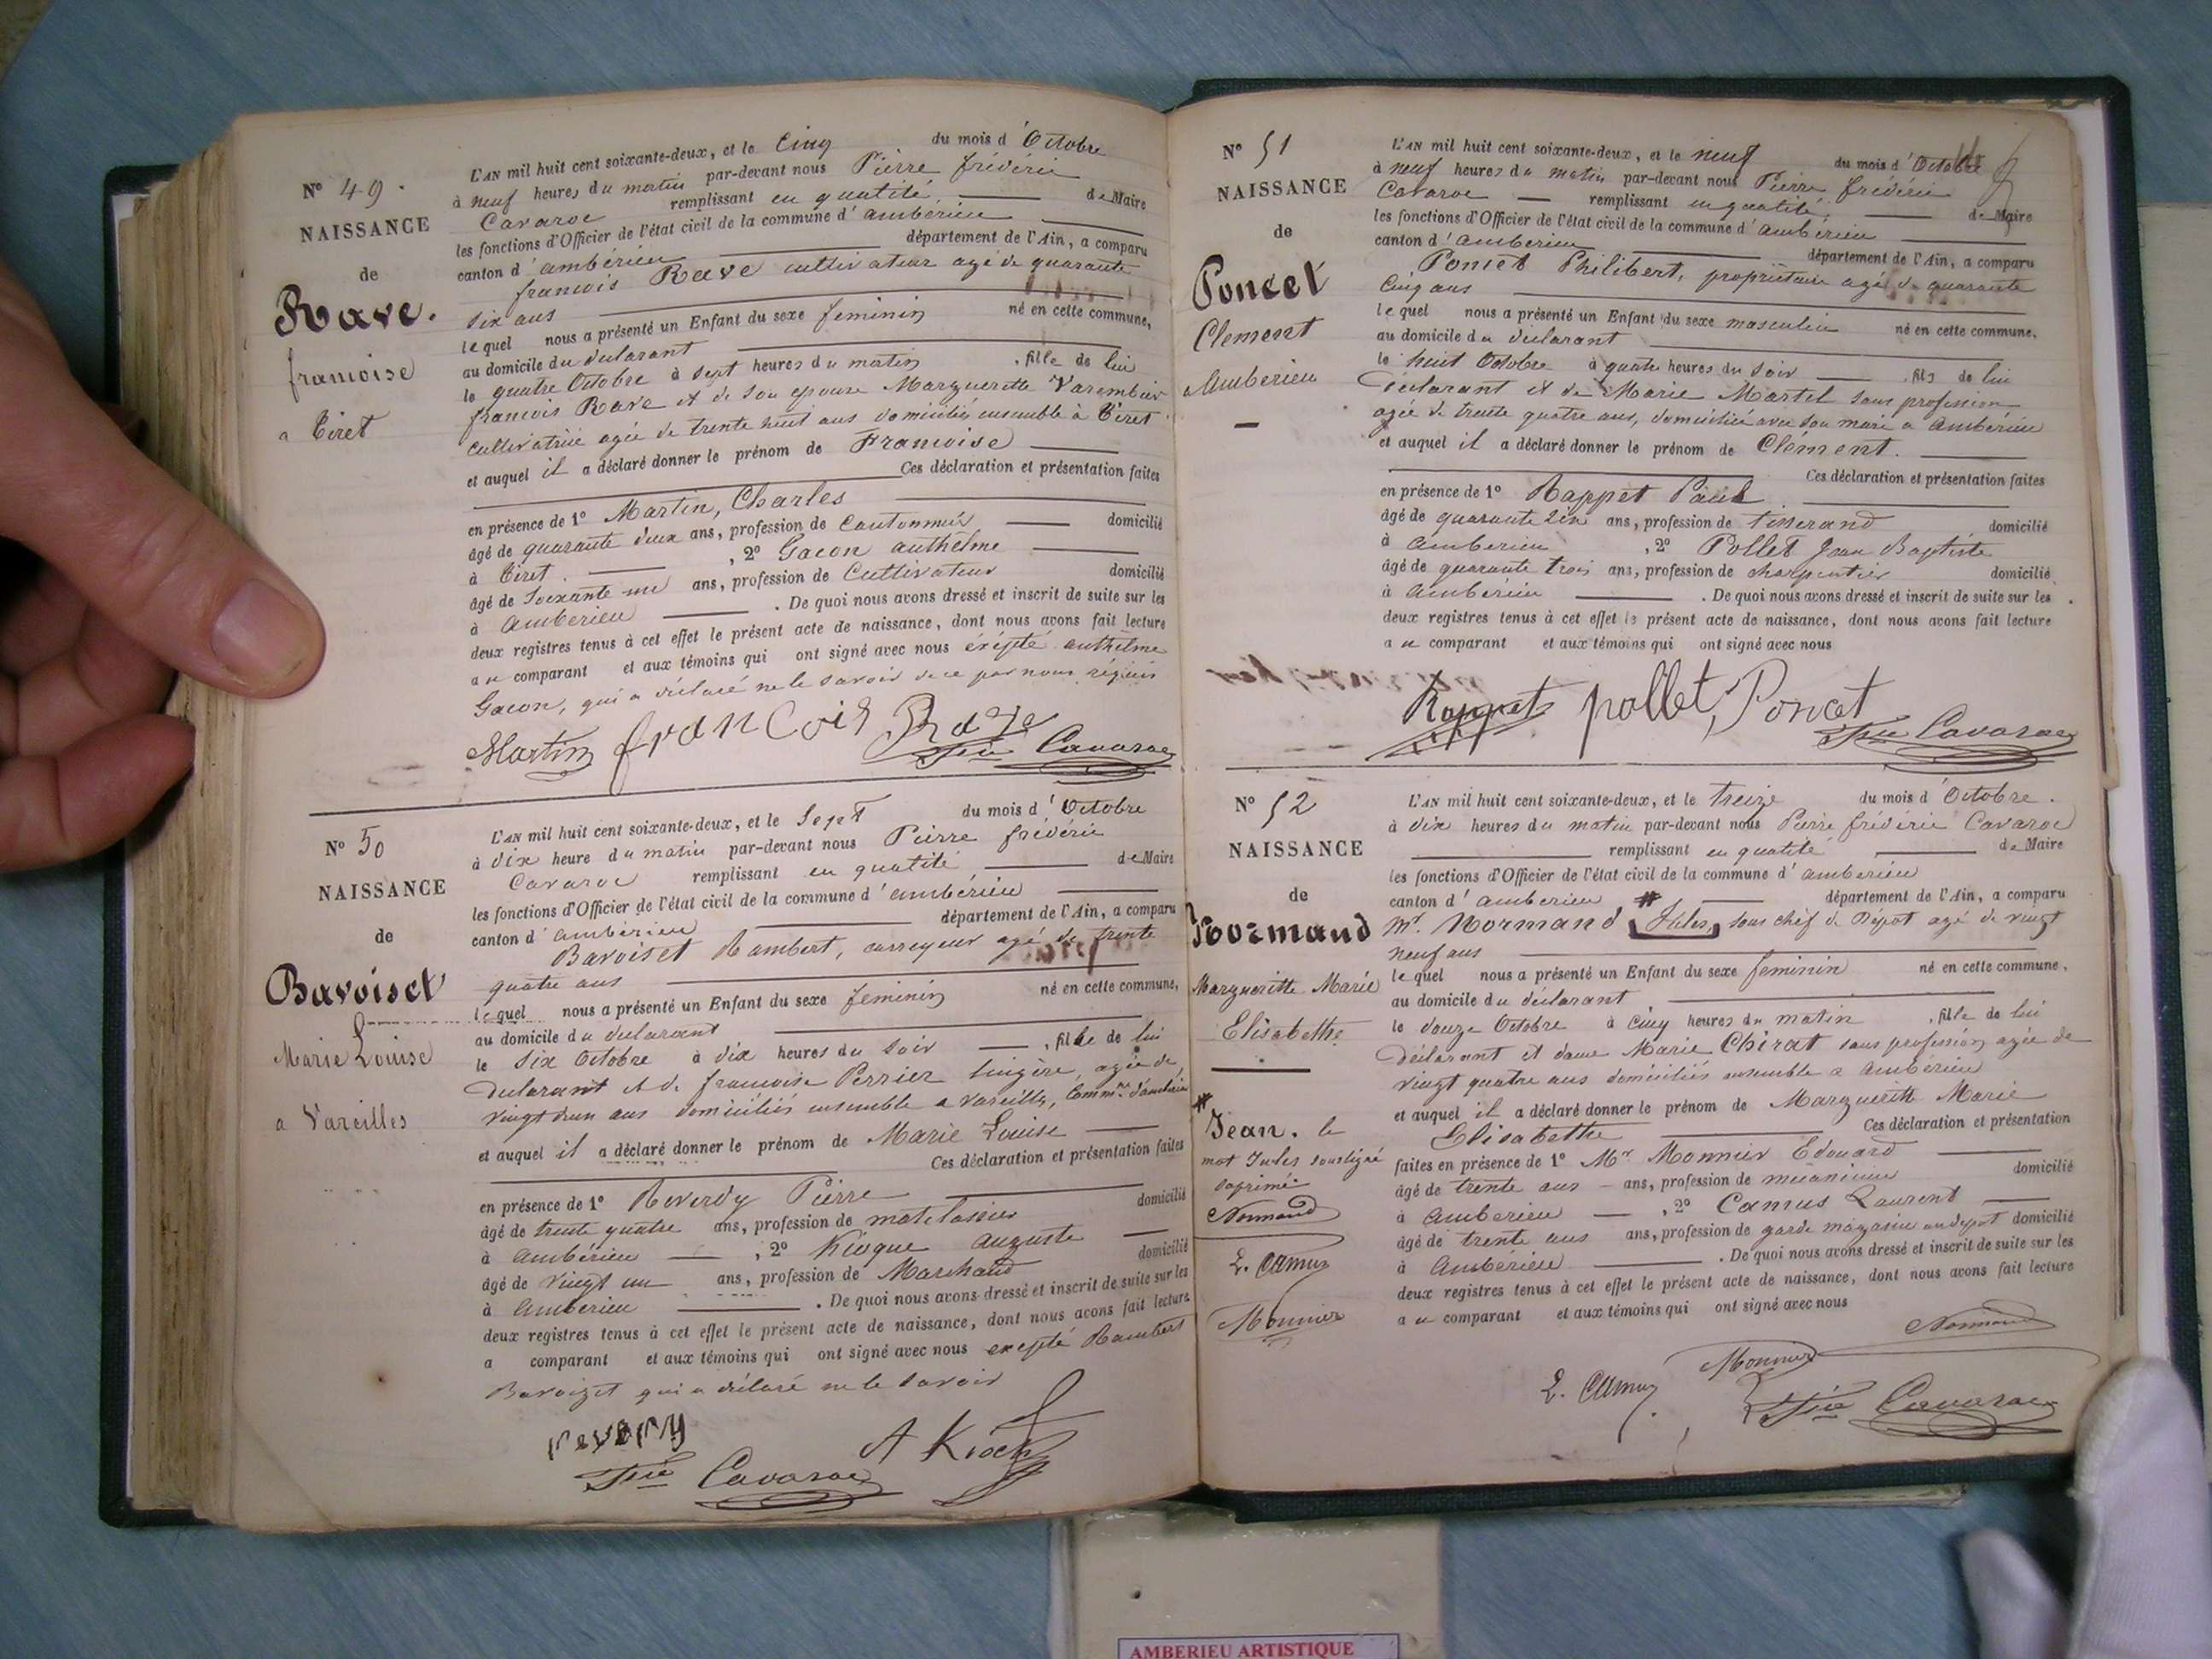 N° 49.
NAISSANCE
de
Rave.
francoise
a Tiret
L'AN mil huit cent soixante-deux, et le Cinq du mois d'Octobre
à neuf heures du matin par-devant nous Pierre frédéric
Cavaroc remplissant en qualité de Maire
les fonctions d'Officier de l'état civil de la commune d'ambérieu
canton d'ambérieu département de l'Ain, a comparu
francois Rave cultivateur agé de quarante
six ans
lequel nous a présenté un Enfant du sexe feminin né en cette commune,
au domicile du déclarant
le quatre Octobre à sept heures du matin, fille de lui
francois Rave et de son epouse Marguerette Varembier
cultivatrice agée de trente huit ans domiciliés ensemble a Tiret
et auquel il a déclaré donner le prénom de Francoise
Ces déclaration et présentation faites
en présence de 1° Martin, Charles
âgé de quarante deux ans, profession de Cantonnier domicilié
à Tiret. , 2° Gacon anthelme
âgé de Soixante un ans, profession de Cultivateur domicilié
à Ambérieu . De quoi nous avons dressé et inscrit de suite sur les
deux registres tenus à cet effet le présent acte de naissance, dont nous avons fait lecture
au comparant et aux témoins qui ont signé avec nous exépté anthelme
Gacon, qui a déclaré ne le savoir de ce par nous réquis
Martin francois Rave
Fric Cavaroc
N° 50
NAISSANCE
de
Bavoiset
Marie Louise
a Vareilles
L'AN mil huit cent soixante-deux, et le Sept du mois d'Octobre
à dix heure du matin par-devant nous Pierre frédéric
Cavaroc remplissant en qualité de Maire
les fonctions d'Officier de l'état civil de la commune d'ambérieu
canton d'ambérieu département de l'Ain, a comparu
Bavoiset Rambert, carreyeur agé de trente
quatre ans
lequel nous a présenté un Enfant du sexe feminin né en cette commune,
au domicile du déclarant
le Six Octobre à dix heures du soir , fille de lui
declarant et de francoise Perrier lingère, agée de
vingt deux ans domiciliés ensemble a Vareilles, Comm.ne d'ambérieu
et auquel il a déclaré donner le prénom de Marie Louise
Ces déclaration et présentation faites
en présence de 1° Reverdy Pierre domicilié
âgé de trente quatre ans, profession de matelassier
à ambérieu , 2° Kioque auguste
âgé de vingt un ans, profession de Marchand domicilié
à Ambérieu . De quoi nous avons dressé et inscrit de suite sur les
deux registres tenus à cet effet le présent acte de naissance, dont nous avons fait lecture
a comparant et aux témoins qui ont signé avec nous exepté Rambert
Bavoizet qui a déclaré ne le savoir
A Kioch
Fric Cavaroc
N° 51
NAISSANCE
de
Poncet
Clement
Amberieu
L'AN mil huit cent soixante-deux, et le neuf du mois d'Octobre
à neuf heures du matin par-devant nous Pierre frédéric
Cavaroc remplissant en qualité, de Maire
les fonctions d'Officier de l'état civil de la commune d'ambérieu
canton d'amberieu département de l'Ain, a comparu
Poncet Philibert, propriétaire agé de quarante
Cinq ans
lequel nous a présenté un Enfant du sexe masculin né en cette commune.
au domicile du déclarant
le huit Octobre à quatre heures du soir , fils de lui
déclarant et de Marie Martel sans profession
agée de trente quatre ans, domiciliée avec son mari a Ambérieu
et auquel il a déclaré donner le prénom de Clément.
Ces déclaration et présentation faites
en présence de 1° Rappet Paul
âgé de quarante six ans, profession de tisserand domicilié
à amberieu , 2° Pollet Jean Baptiste
âgé de quarante trois ans, profession de charpentier domicilié
à ambérieu . De quoi nous avons dressé et inscrit de suite sur les
deux registres tenus à cet effet le présent acte de naissance, dont nous avons fait lecture
au comparant et aux témoins qui ont signé avec nous
Rappet pollet Poncet
Fric Cavaroc
N° 52
NAISSANCE
de
Normand
Margueritte Marie
Elisabethe
# Jean. le
mot Jules souligné
suprimé.
Normand
L. Camus
Monnier
L'AN mil huit cent soixante-deux, et le treize du mois d'Octobre.
à dix heures du matin par-devant nous Pierre frédéric Cavaroc
remplissant en qualité de Maire
les fonctions d'Officier de l'état civil de la commune d'ambérieu
canton d'amberieu # département de l'Ain, a comparu
Mr. Normand Jules, sous chéf de Dépot agé de vingt
neuf ans
lequel nous a présenté un Enfant du sexe feminin né en cette commune.
au domicile du déclarant
le douze Octobre à cinq heures du matin , fille de lui
déclarant et dame Marie Chirat sans profession, agée de
vingt quatre ans domiciliés ensemble a ambérieu
et auquel il a déclaré donner le prénom de Marguerith Marie
Elisabethe Ces déclaration et présentation
faites en présence de 1° Mr. Monnier Edouard
âgé de trente ans ans, profession de mécanicien domicilié
à amberieu , 2° Camus Laurent
âgé de trente ans ans, profession de garde magasin au depot domicilié
à Ambérieu . De quoi nous avons dressé et inscrit de suite sur les
deux registres tenus à cet effet le présent acte de naissance, dont nous avons fait lecture
au comparant et aux témoins qui ont signé avec nous
Normand
Monnier
L. Camus
Fric Cavaroc
AMBERIEU ARTISTIQUE